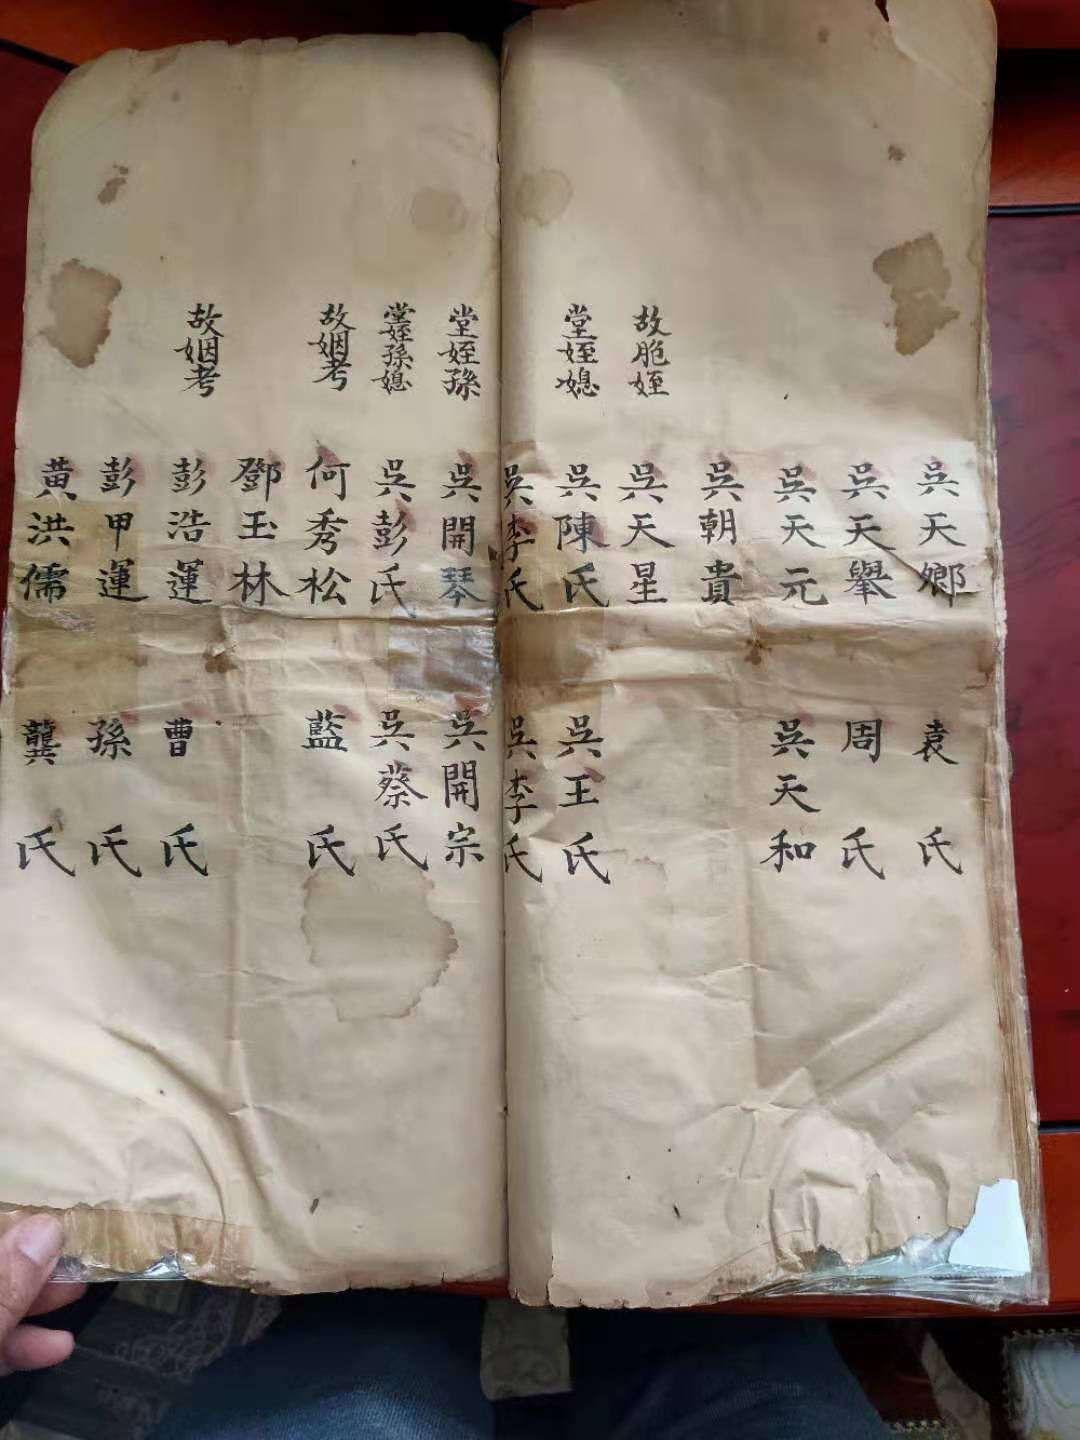 吳天鄉 袁氏
吳天舉 周氏
吳天元 吳天和
吳朝貴
故胞姪 吳天星
堂姪媳 吳陳氏 吳王氏
吳李氏 吳李氏
堂姪孫 吳開琴 吳開宗
堂姪孫媳 吳彭氏 吳蔡氏
故姻考 何秀松 藍氏
鄧玉林
故姻考 彭浩運 曹氏
彭甲運 孫氏
黃洪儒 龔氏